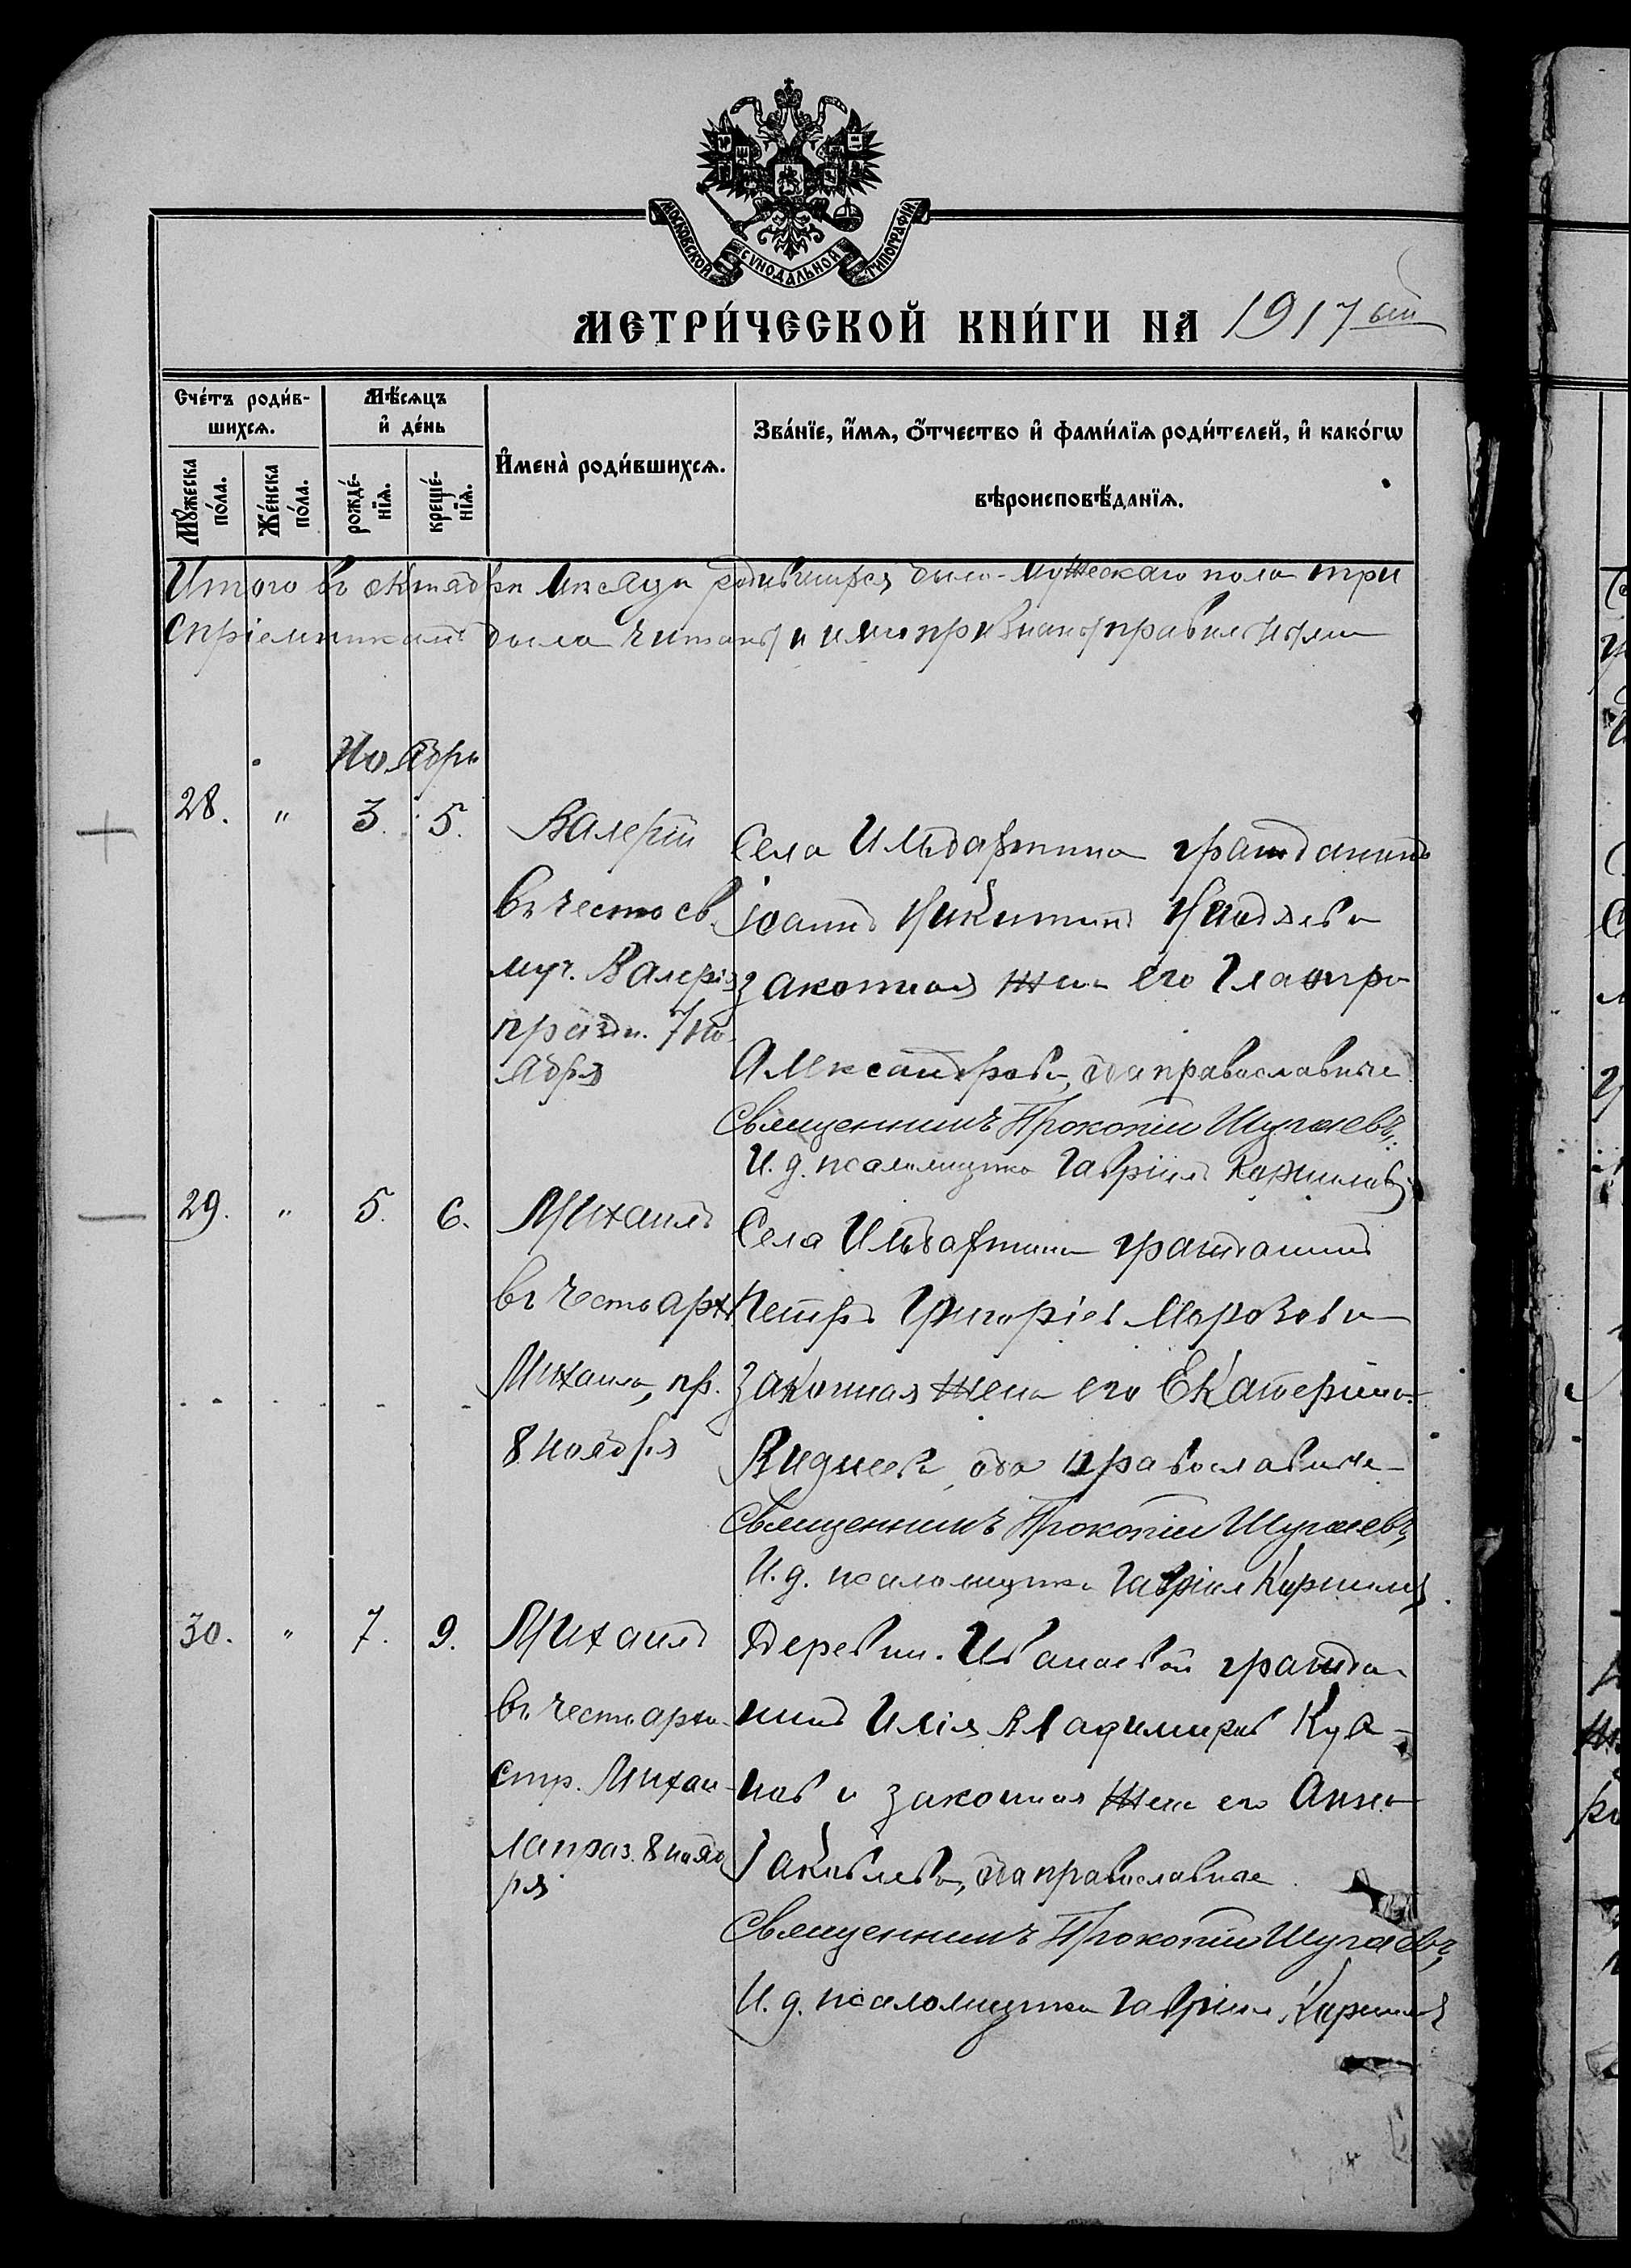 МОСКОВСКОЙ СѴНОДАЛЬНОЙ ТИПОГРАФІИ
МЕТРИ́ЧЕСКОЙ КНИ́ГИ НА 1917 ый
Сче́тъ роди́в-
шихсѧ.
Мꙋ́жеска
по́ла.
Же́нска
по́ла.
Мѣ́сѧцъ
и҆ де́нь
рожде́-
нїѧ.
креще́-
нїѧ.
И҆мена̀ роди́вшихсѧ.
Зва́нїе, и҆́мѧ, ѻ҆́тчество и҆ фами́лїѧ роди́телей, и҆ како́гѡ
вѣроисповѣ́данїѧ.
Итого въ октябрѣ мѣсяцѣ родившихся было мужескаго пола три
была и
Ноябрь
28. " 3. 5.
Валерій
въ честь св.
муч. Валерія
праздн. 7 но-
ября
Села гражданинъ
Іоаннъ Никитинъ
законная жена его
Александрова, оба православные
Священникъ Прокопій Шугаевъ.
И. д. псаломщика Гавріилъ
29. " 5. 6.
Михаилъ
въ честь арх.
Михаила, пр.
8 ноября
Села гражданинъ
Петръ Григорьевъ Морозовъ и
законная жена его Екатерина
оба православные
Священникъ Прокопій Шугаевъ,
И. д. псаломщика Гавріилъ
30. " 7. 9.
Михаилъ
въ честь архи-
стр. Михаи-
ла праз. 8 нояб
ря
Деревни Иванаевой гражда-
нинъ Илія Владимировъ
и законная жена его Анна
Іаковлева, оба православные
Священникъ Прокопій Шугаевъ,
И. д. псаломщика Гавріилъ